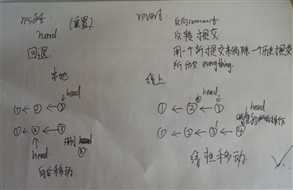 reset (重置)
head
回退
本地
head
① ← ② ← ③
① ← ② ← ③
head
head
向后移动
revert
反向commit
反转提交
用一个新提交来消除一个历史提交
所做的 everything.
线上
head
① ← ② ← ③
head
① ← ② ← ③ ← ④
继续移动